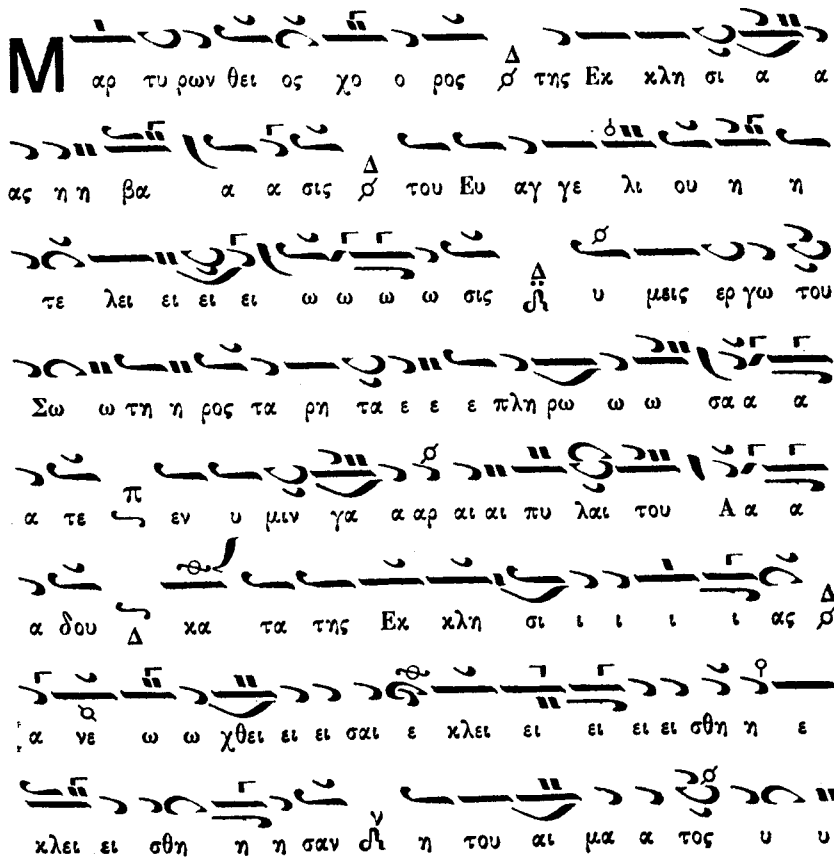 Μ αρ τυ ρων θει ος χο ο ρος Δ της Εκ κλη σι α α
ας η η βα α α σις Δ του Ευ αγ γε λι ου η η
τε λει ει ει ει ω ω ω ω σις Δ υ μεις ερ γω του
Σω ω τη η ρος τα ρη τα ε ε ε πλη ρω ω ω σα α α
α τε π εν υ μιν γα α αρ αι αι πυ λαι του Α α α
α δου Δ κα τα της Εκ κλη σι ι ι ι ι ας Δ
α νε ω ω χθει ει ει σαι ε κλει ει ει ει ει σθη η ε
κλει ει σθη η η σαν ν η του αι μα α τος υ υ